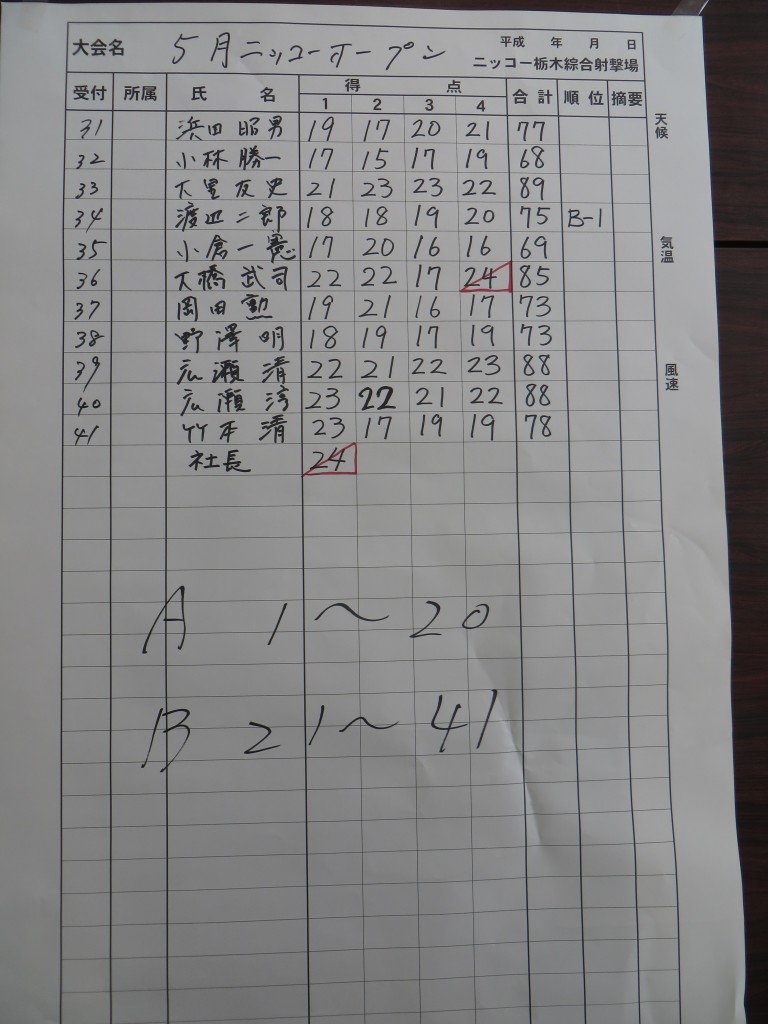 大会名 5月ニッコーオープン 平成 年 月 日
ニッコー栃木綜合射撃場
受付 所属 氏 名 得 点 合計 順位 摘要
1 2 3 4
31 浜田昭男 19 17 20 21 77
32 小林勝一 17 15 17 19 68
33 大里友史 21 23 23 22 89
34 渡辺二郎 18 18 19 20 75 B-1
35 小倉一憲 17 20 16 16 69
36 大橋武司 22 22 17 24 85
37 岡田勲 19 21 16 17 73
38 野澤明 18 19 17 19 73
39 広瀬清 22 21 22 23 88
40 広瀬淳 23 22 21 22 88
41 竹本清 23 17 19 19 78
社長 24
A 1〜20
B 21〜41
天候
気温
風速